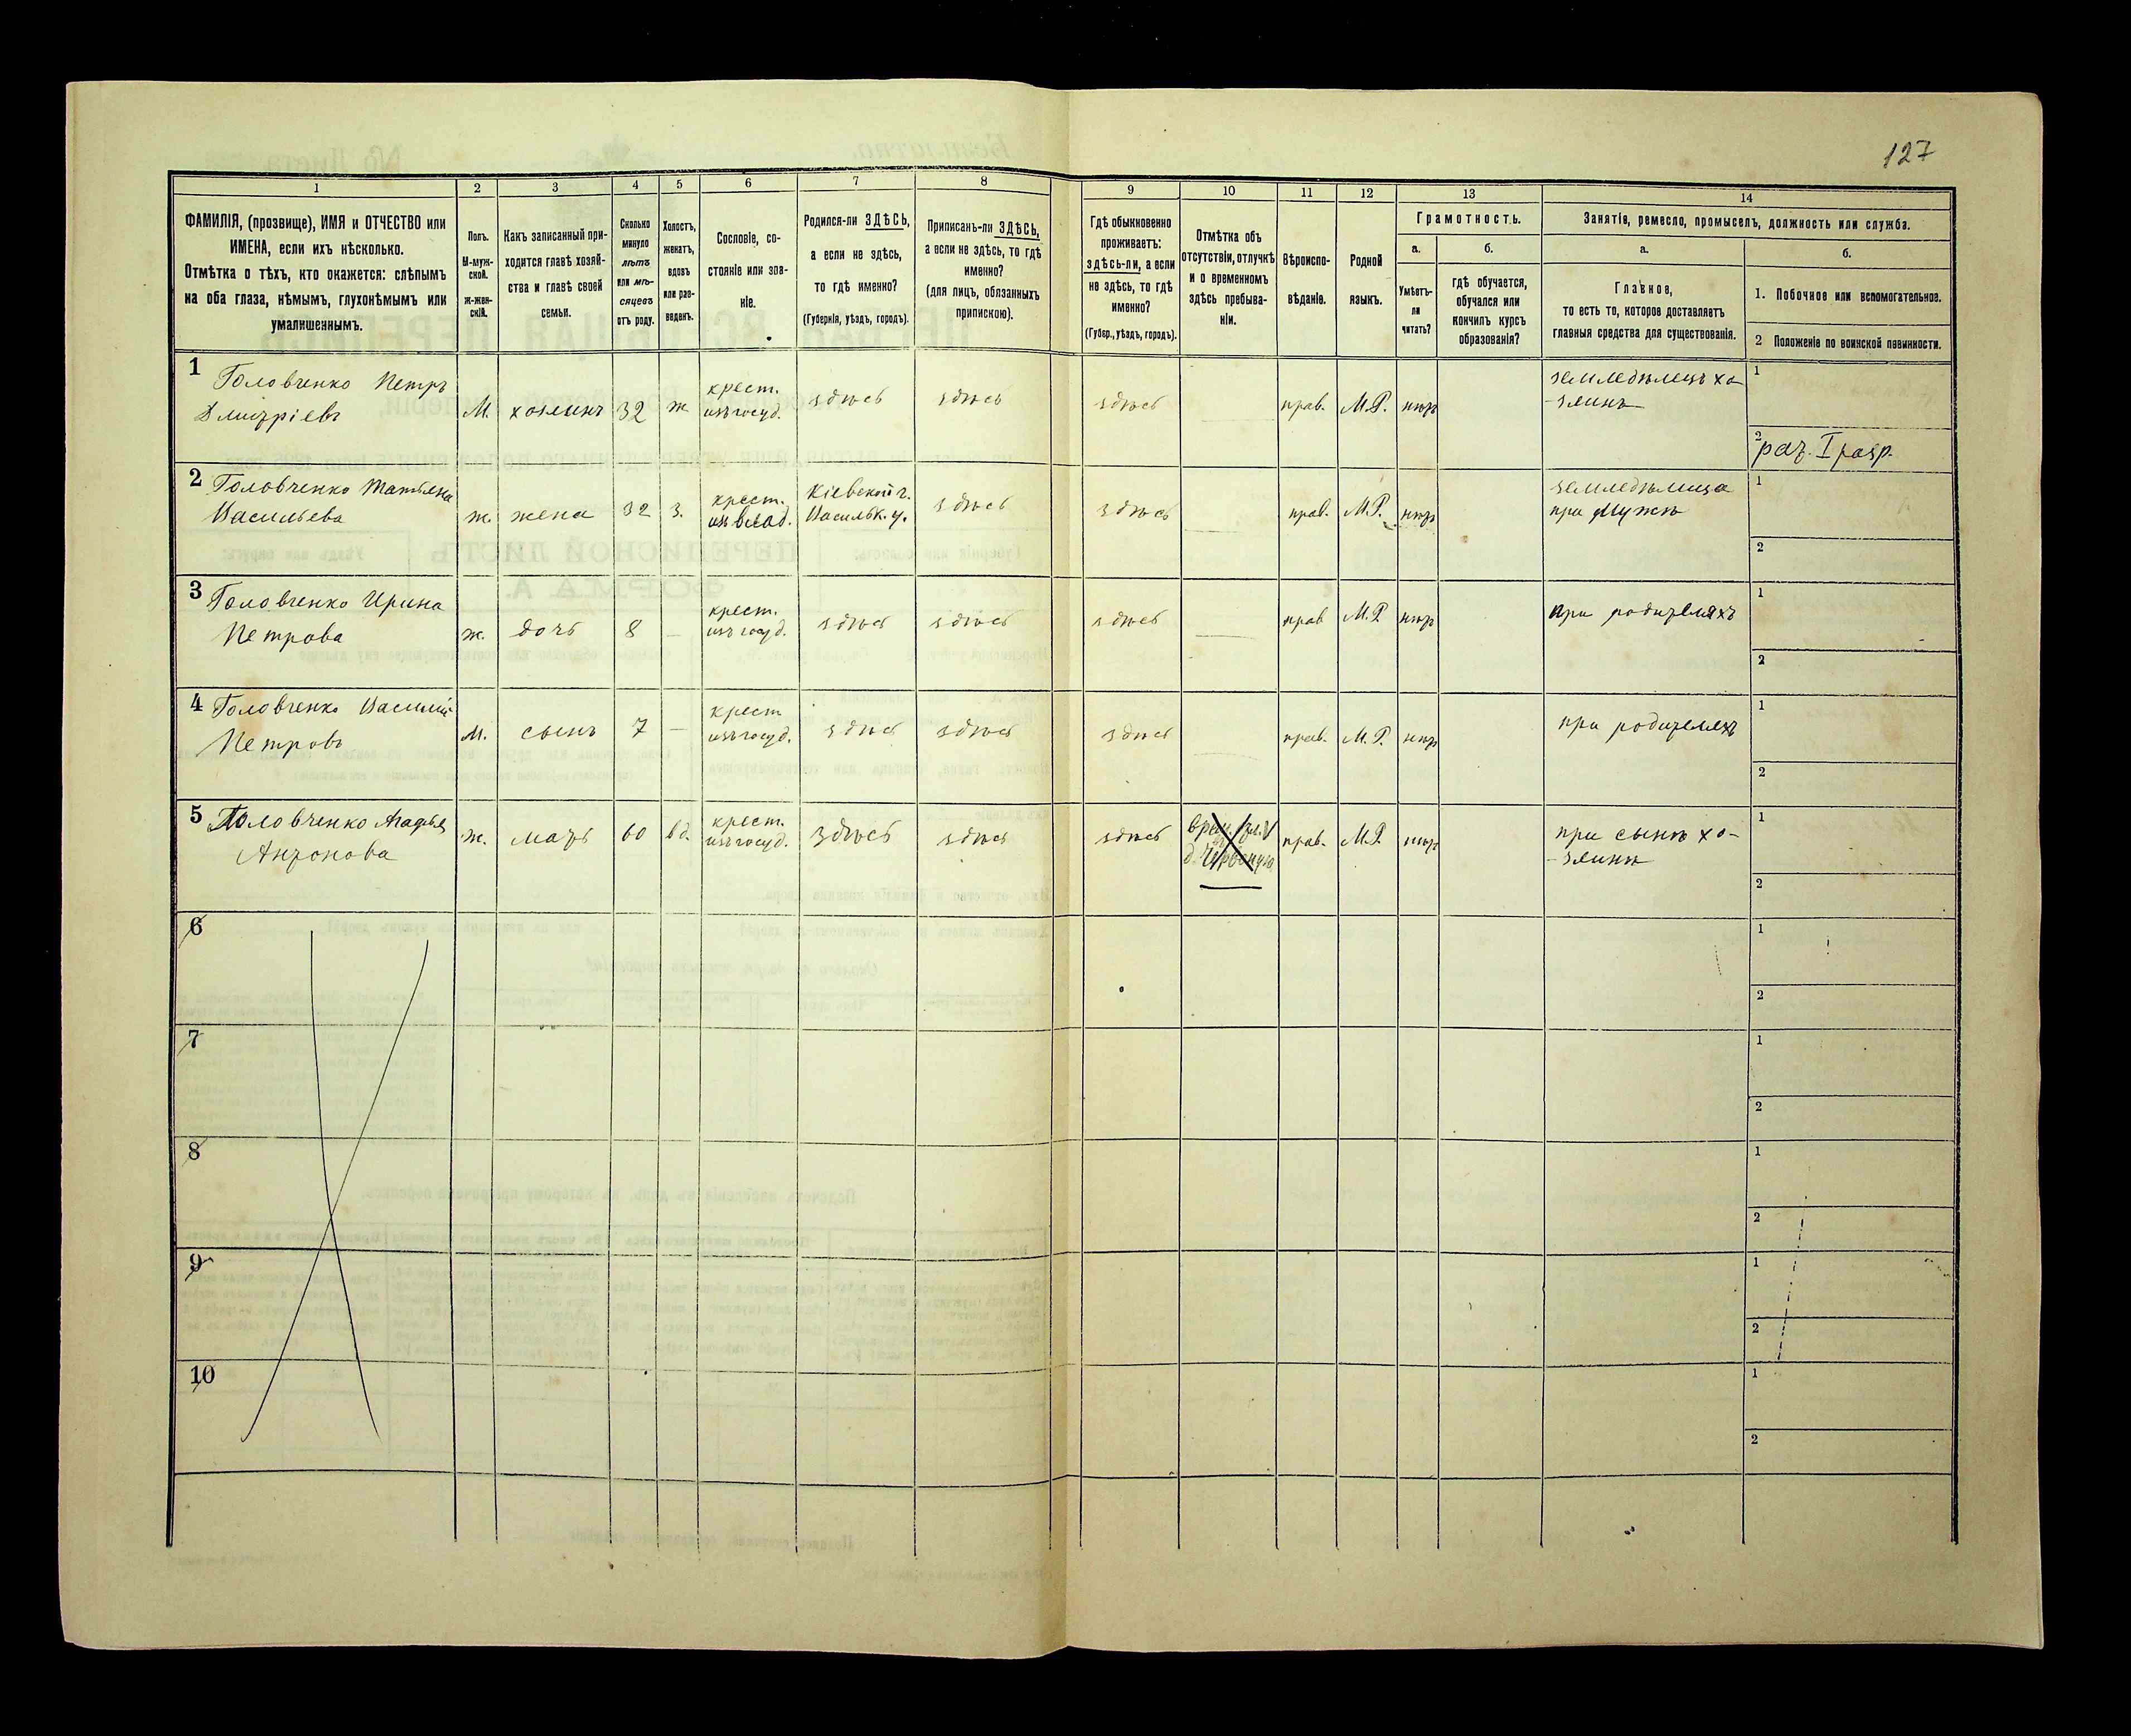 127
1 2 3 4 5 6 7 8 9 10 11 12 13 14
ФАМИЛІЯ, (прозвище), ИМЯ и ОТЧЕСТВО или
ИМЕНА, если ихъ нѣсколько.
Отмѣтка о тѣхъ, кто окажется: слѣпымъ
на оба глаза, нѣмымъ, глухонѣмымъ или
умалишеннымъ.
Полъ.
М-муж-
ской.
ж-жен-
скій.
Какъ записанный при-
ходится главѣ хозяй-
ства и главѣ своей
семьи.
Сколько
минуло
лѣтъ
или мѣ-
сяцевъ
отъ роду.
Холостъ,
женатъ,
вдовъ
или раз-
веденъ.
Сословіе, со-
стояніе или зва-
ніе.
Родился-ли ЗДѢСЬ,
а если не здѣсь,
то гдѣ именно?
(Губернія, уѣздъ, городъ).
Приписанъ-ли ЗДѢСЬ,
а если не здѣсь, то гдѣ
именно?
(для лицъ, обязанныхъ
припискою).
Гдѣ обыкновенно
проживаетъ:
здѣсь-ли, а если
не здѣсь, то гдѣ
именно?
(Губер., уѣздъ, городъ).
Отмѣтка объ
отсутствіи, отлучкѣ
и о временномъ
здѣсь пребыва-
ніи.
Вѣроиспо-
вѣданіе.
Родной
языкъ.
Грамотность.
а.
Умѣетъ-
ли
читать?
б.
гдѣ обучается,
обучался или
кончилъ курсъ
образованія?
Занятіе, ремесло, промыселъ, должность или служба.
а.
Главное,
то есть то, которое доставляетъ
главныя средства для существованія.
б.
1. Побочное или вспомогательное.
2 Положеніе по воинской повинности.
1 Головченко Петръ
Дмитріевъ
М. хозяинъ 32 ж.
крест.
изъ госуд.
здѣсь здѣсь здѣсь прав. М.Р. нѣтъ
земледѣлецъ хо-
-зяинъ
1
2 рат. I разр.
2 Головченко Татьяна
Васильева
ж. жена 32 з.
крест.
из влад.
Кіевской г.
Васильк. у.
здѣсь здѣсь прав. М.Р. нѣтъ
земледѣлица
при мужѣ
1
2
3 Головченко Ирина
Петрова
ж. дочь 8 —
крест.
изъ госуд.
здѣсь здѣсь здѣсь прав М.Р нѣтъ
при родителяхъ
1
2
4 Головченко Василій
Петровъ
М. сынъ 7 —
крест
изъ госуд.
здѣсь здѣсь здѣсь прав. М.Р. нѣтъ
при родителяхъ
1
2
5 Головченко Агафья
Антонова
ж. мать 60 вд.
крест.
изъ госуд.
здѣсь здѣсь здѣсь
прав. М.Р. нѣтъ
при сынѣ хо-
-зяинѣ
1
2
6
1
2
7
1
2
8
1
2
9
1
2
10
1
2